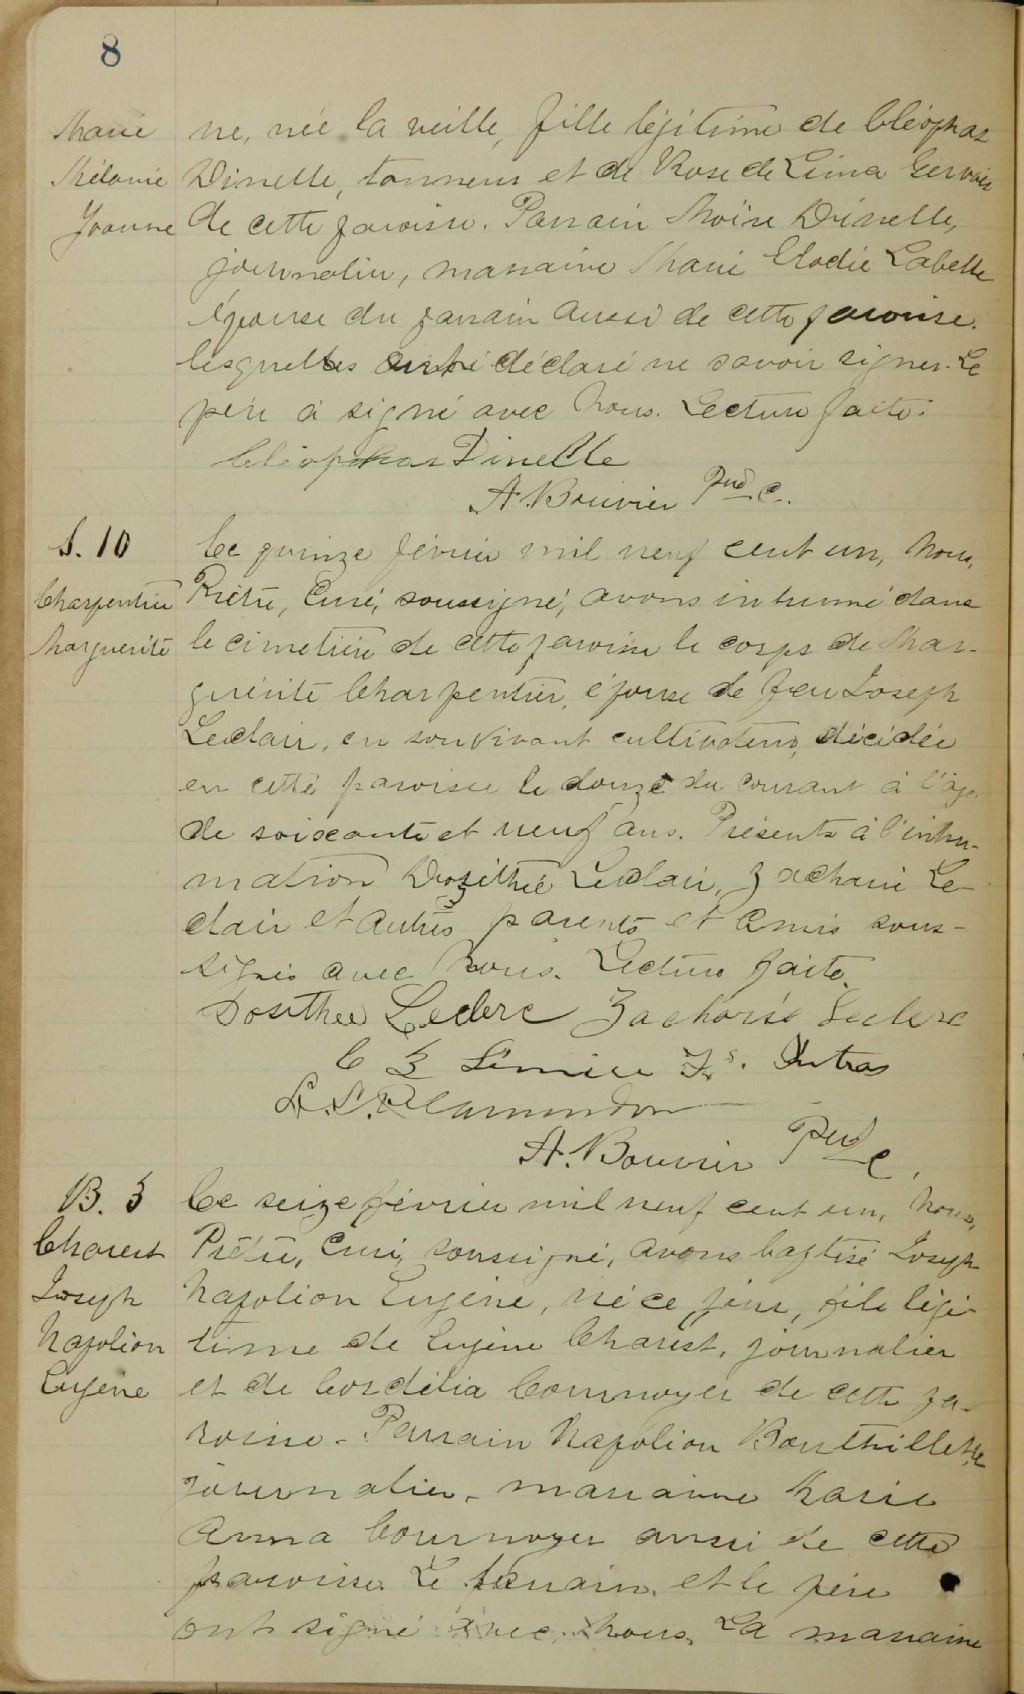 8
Marie
Mélanie
Joanne
ne, née la veille, fille légitime de Cléophas
Dinelle, tanneur et de Rose de Lima Gervais
de cette paroisse. Parrain Moïse Dinelle,
journalier, marraine Marie Elodie Labelle
épouse du parrain aussi de cette paroisse.
lesquelles ont déclaré ne savoir signer. Le
père a signé avec Nous. Lecture faite.
Cléophas Dinelle
A. Bouvier Ptre C.
S. 10
Charpentier
Marguerite
Le quinze février mil neuf cent un, Nous,
Prêtre, Curé, soussigné, avons inhumé dans
le cimetière de cette paroisse le corps de Mar-
guérite Charpentier, épouse de feu Joseph
Leclair, en son vivant cultivateur, décédée
en cette paroisse le douze du courant à l'âge
de soixante et neuf ans. Présents à l'inhu-
mation Dosithée Leclair, Zacharie Le-
clair et autres parents et amis sous-
signés avec Nous. Lecture faite.
Dosithee Leclerc Zacharie Leclerc
C Z Lemire Fs. Dutras
L. S. Plamondon
A. Bouvier Ptre C.
B. 3
Charest
Joseph
Napoléon
Eugène
Le seize février mil neuf cent un, Nous,
Prêtre, Curé, soussigné, avons baptisé Joseph
Napoléon Eugène, né ce jour, fils légi-
time de Eugène Charest, journalier
et de Cordélia Cournoyer de cette pa-
roisse. Parrain Napoléon Bouthillette
journalier, marraine Marie
Anna Cournoyer aussi de cette
paroisse. Le parrain et le père
ont signé avec Nous. La marraine